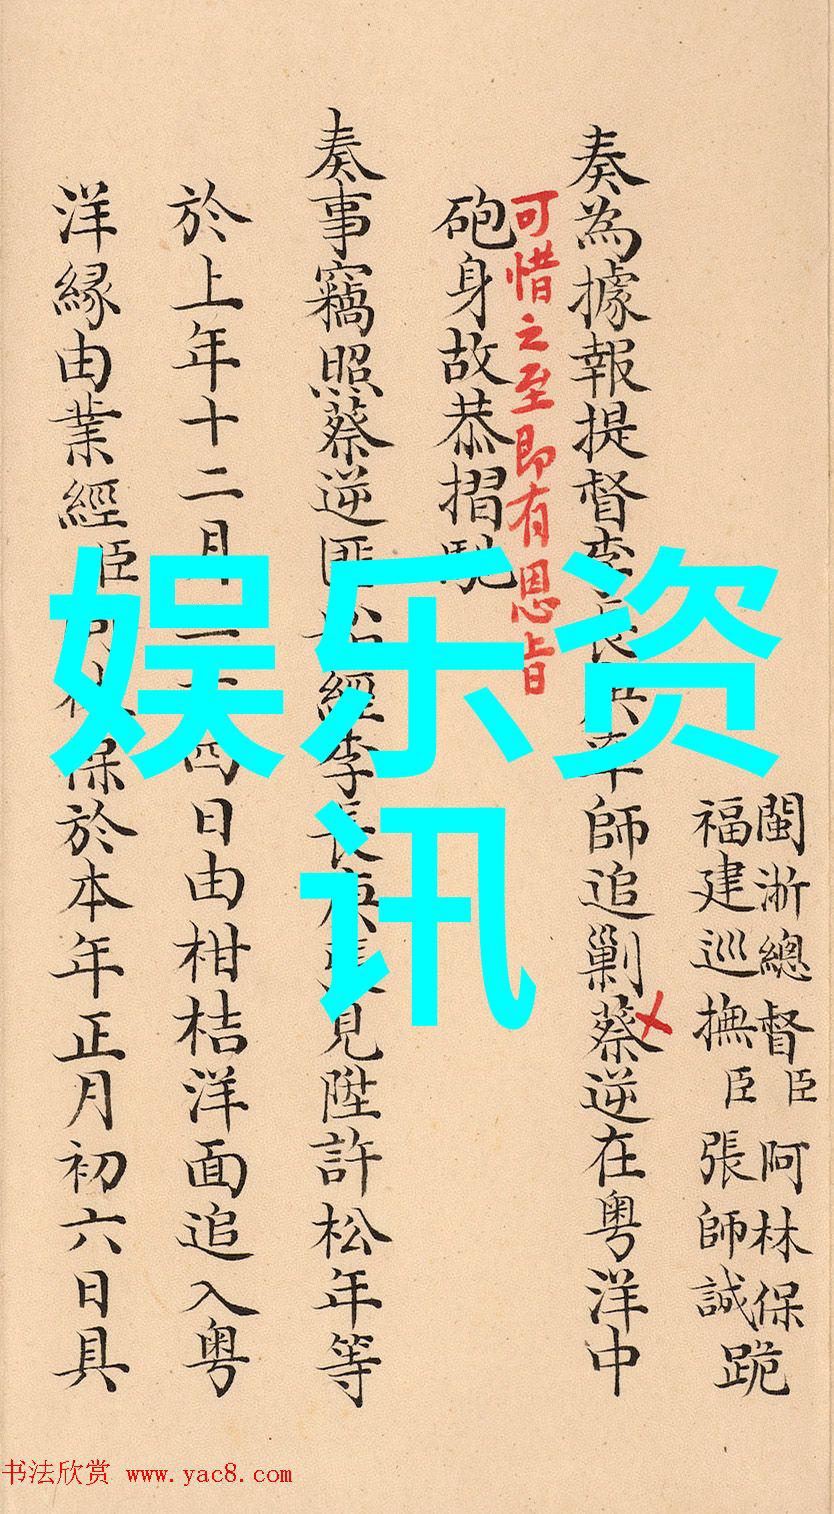 閩浙總督臣阿林保跪
福建巡撫臣張師誠
奏為據報提督李長庚率師追剿蔡逆在粤洋中
可惜之至即有恩旨
砲身故恭摺馳
奏事竊照蔡逆匪船經李長庚張見陞許松年等
於上年十二月二十四日由柑桔洋面追入粤
洋緣由業經臣阿林保於本年正月初六日具
娱乐资
讯
书法欣赏 www.yac8.com